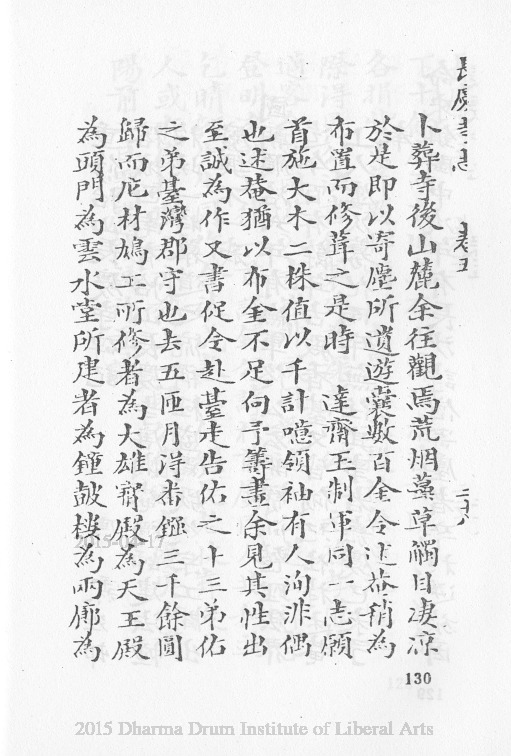 長慶寺志 卷五 二十八
卜葬寺後山麓余往觀焉荒烟蔓草觸目凄凉
於是即以寄塵所遺遊囊數百金令述菴稍為
布置而修葺之是時 達齋王制軍同一志願
首施大木二株值以千計噫領袖有人洵非偶
也述菴猶以布金不足向予籌畫余見其性出
至誠為作文書促令赴臺走告佑之十三弟佑
之弟臺灣郡守也去五匝月淂番鏹三千餘圓
歸而庀材鳩工所修者為大雄寶殿為天王殿
為頭門為雲水堂所建者為鐘皷樓為兩廊為
130
2015-06-17
2015 Dharma Drum Institute of Liberal Arts